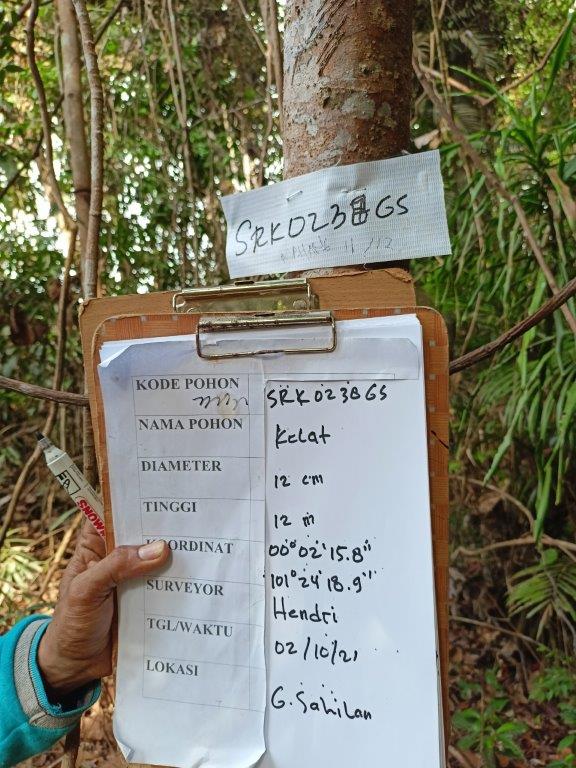 SRK0238GS
KODE POHON SRK0238GS
NAMA POHON Kelat
DIAMETER 12 cm
TINGGI 12 m
KOORDINAT 00°02'15.8"
101°24'18.9"
SURVEYOR Hendri
TGL/WAKTU 02/10/21
LOKASI G. Sahilan